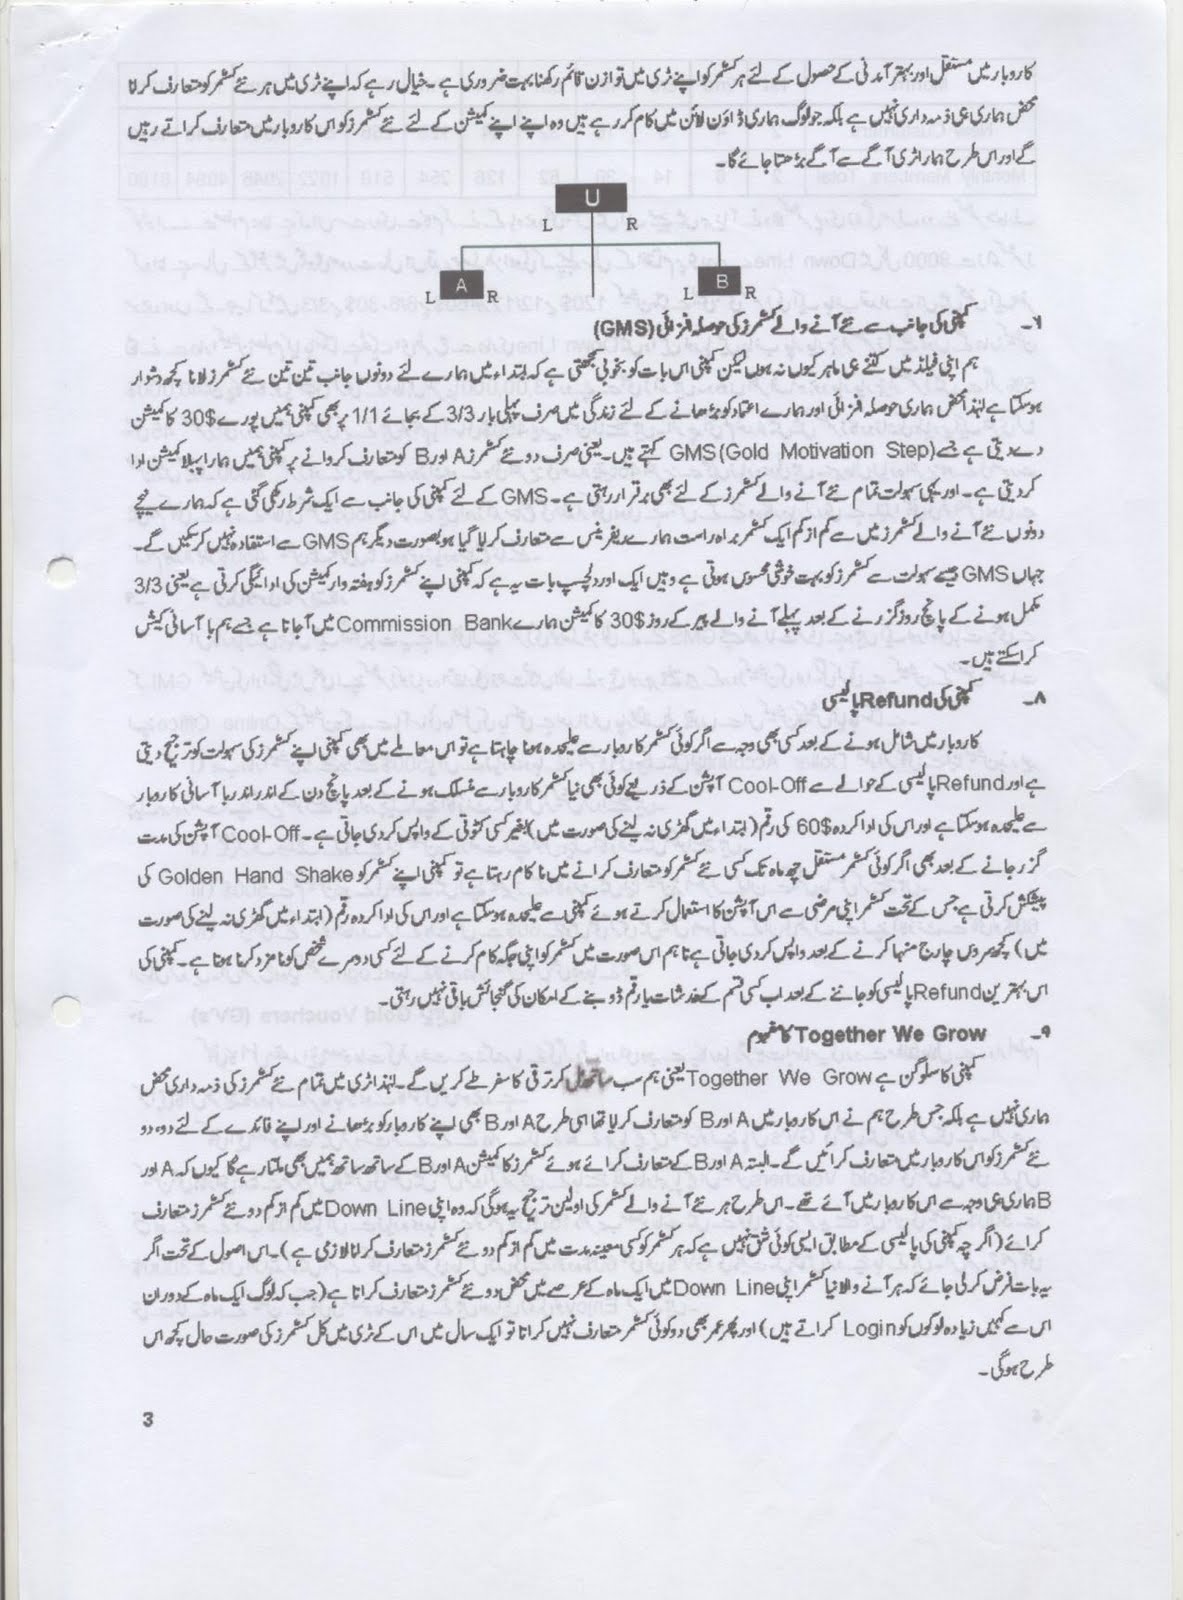 کاروبار میں مستقل اور بہتر آمدنی کے حصول کے لئے ہر کسٹمر کو اپنے ٹری میں توازن قائم رکھنا بہت ضروری ہے۔ خیال رہے کہ اپنے ٹری میں ہر نئے کسٹمر کو متعارف کرانا
محض ہماری ہی ذمہ داری نہیں ہے بلکہ جو لوگ ہماری ڈاؤن لائن میں کام کر رہے ہیں وہ اپنے اپنے کمیشن کے لئے نئے کسٹمرز کو اس کاروبار میں متعارف کراتے رہیں
گے اور اس طرح ہمارا ٹری آگے سے آگے بڑھتا جائے گا۔
U
L R
A B
L R L R
۷۔ کمپنی کی جانب سے نئے آنے والے کسٹمرز کی حوصلہ افزائی (GMS)
ہم اپنی فیلڈ میں کتنے ہی ماہر کیوں نہ ہوں لیکن کمپنی اس بات کو بخوبی سمجھتی ہے کہ ابتداء میں ہمارے لئے دونوں جانب تین تین نئے کسٹمرز لانا کچھ دشوار
ہو سکتا ہے لہٰذا محض ہماری حوصلہ افزائی اور ہمارے اعتماد کو بڑھانے کے لئے زندگی میں صرف پہلی بار 3/3 کے بجائے 1/1 پر بھی کمپنی ہمیں پورے 30$ کا کمیشن
دے دیتی ہے جسے GMS (Gold Motivation Step) کہتے ہیں۔ یعنی صرف دو نئے کسٹمرز A اور B کو متعارف کروانے پر کمپنی ہمیں ہمارا پہلا کمیشن ادا
کر دیتی ہے۔ اور یہی سہولت تمام نئے آنے والے کسٹمرز کے لئے بھی برقرار رہتی ہے۔ GMS کے لئے کمپنی کی جانب سے ایک شرط رکھی گئی ہے کہ ہمارے نیچے
دونوں نئے آنے والے کسٹمرز میں سے کم از کم ایک کسٹمر براہ راست ہمارے ریفرینس سے متعارف کرایا گیا ہو بصورت دیگر ہم GMS سے استفادہ نہیں کر سکیں گے۔
جہاں GMS جیسے سہولت سے کسٹمرز کو بہت خوشی محسوس ہوتی ہے وہیں ایک اور دلچسپ بات یہ ہے کہ کمپنی اپنے کسٹمرز کو ہفتہ وار کمیشن کی ادائیگی کرتی ہے یعنی 3/3
مکمل ہونے کے پانچ روز گزرنے کے بعد پہلے آنے والے پیر کے روز 30$ کا کمیشن ہمارے Commission Bank میں آجاتا ہے جسے ہم با آسانی کیش
کرا سکتے ہیں۔
۸۔ کمپنی کی Refund پالیسی
کاروبار میں شامل ہونے کے بعد کسی بھی وجہ سے اگر کوئی کسٹمر کاروبار سے علیحدہ ہونا چاہتا ہے تو اس معاملے میں بھی کمپنی اپنے کسٹمرز کی سہولت کو ترجیح دیتی
ہے اور Refund پالیسی کے حوالے سے Cool-Off آپشن کے ذریعے کوئی بھی نیا کسٹمر کاروبار سے منسلک ہونے کے بعد پانچ دن کے اندر اندر با آسانی کاروبار
سے علیحدہ ہو سکتا ہے اور اس کی ادا کردہ 60$ کی رقم (ابتداء میں گھڑی نہ لینے کی صورت میں) بغیر کسی کٹوتی کے واپس کر دی جاتی ہے۔ Cool-Off آپشن کی مدت
گزر جانے کے بعد بھی اگر کوئی کسٹمر مستقل چھ ماہ تک کسی نئے کسٹمر کو متعارف کرانے میں ناکام رہتا ہے تو کمپنی اپنے کسٹمر کو Golden Hand Shake کی
پیشکش کرتی ہے جس کے تحت کسٹمر اپنی مرضی سے اس آپشن کا استعمال کرتے ہوئے کمپنی سے علیحدہ ہو سکتا ہے اور اس کی ادا کردہ رقم (ابتداء میں گھڑی نہ لینے کی صورت
میں) کچھ سروس چارج منہا کرنے کے بعد واپس کر دی جاتی ہے تاہم اس صورت میں کسٹمر کو اپنی جگہ کام کرنے کے لئے کسی دوسرے شخص کو نامزد کرنا ہوتا ہے۔ کمپنی کی
اس بہترین Refund پالیسی کو جاننے کے بعد اب کسی قسم کے خدشات یا رقم ڈوبنے کے امکان کی گنجائش باقی نہیں رہتی۔
۹۔ Together We Grow کا مفہوم
کمپنی کا سلوگن ہے Together We Grow یعنی ہم سب ساتھ مل کر ترقی کا سفر طے کریں گے۔ لہٰذا ٹری میں تمام نئے کسٹمرز کی ذمہ داری محض
ہماری نہیں ہے بلکہ جس طرح ہم نے اس کاروبار میں A اور B کو متعارف کرایا تھا اسی طرح A اور B بھی اپنے کاروبار کو بڑھانے اور اپنے فائدے کے لئے دو، دو
نئے کسٹمرز کو اس کاروبار میں متعارف کرائیں گے۔ البتہ A اور B کے متعارف کرائے ہوئے کسٹمرز کا کمیشن A اور B کے ساتھ ساتھ ہمیں بھی ملتا رہے گا کیوں کہ A اور
B ہماری ہی وجہ سے اس کاروبار میں آئے تھے۔ اس طرح ہر نئے آنے والے کسٹمر کی اولین ترجیح یہ ہوگی کہ وہ اپنی Down Line میں کم از کم دو نئے کسٹمرز متعارف
کرائے (اگر چہ کمپنی کی پالیسی کے مطابق ایسی کوئی شق نہیں ہے کہ ہر کسٹمر کو کسی معینہ مدت میں کم از کم دو نئے کسٹمرز متعارف کرانا لازمی ہے)۔ اس اصول کے تحت اگر
یہ بات فرض کر لی جائے کہ ہر آنے والا نیا کسٹمر اپنی Down Line میں ایک ماہ کے عرصے میں محض دو نئے کسٹمرز متعارف کراتا ہے (جب کہ لوگ ایک ماہ کے دوران
اس سے کہیں زیادہ لوگوں کو Login کراتے ہیں) اور پھر عمر بھی دو کوئی کسٹمر متعارف نہیں کراتا تو ایک سال میں اس کے ٹری میں کل کسٹمرز کی صورت حال کچھ اس
طرح ہوگی۔
3